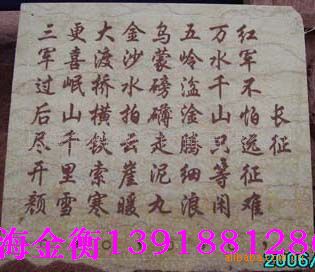 长征
红军不怕远征难
万水千山只等闲
五岭逶迤腾细浪
乌蒙磅礴走泥丸
金沙水拍云崖暖
大渡桥横铁索寒
更喜岷山千里雪
三军过后尽开颜
海金衡1391881286
2006/